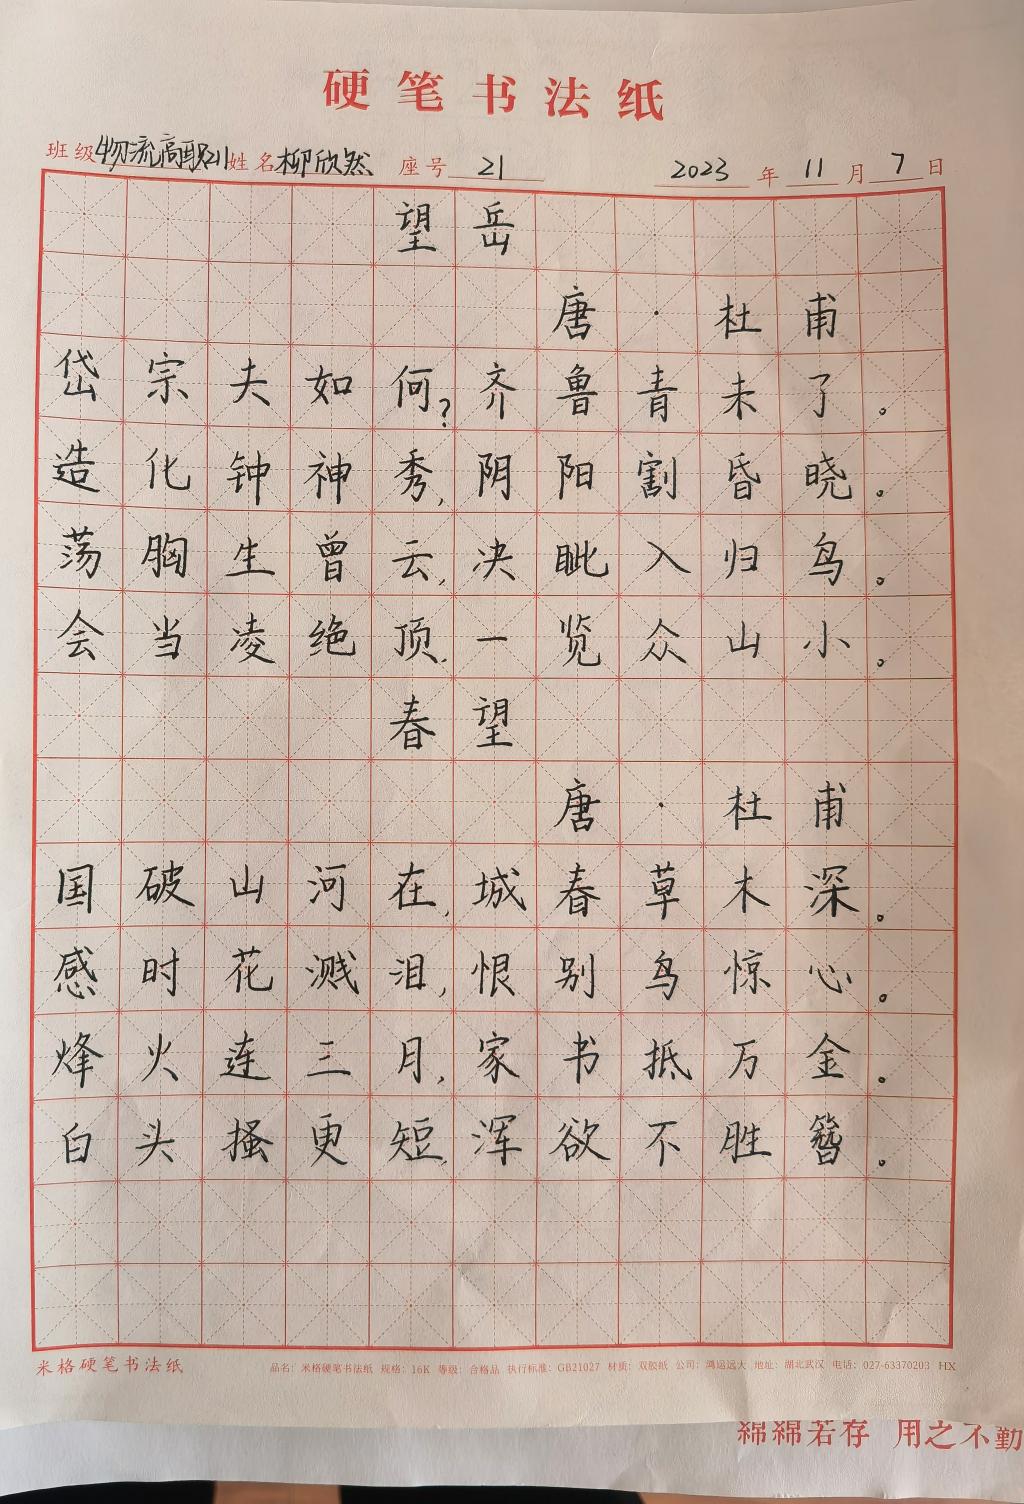 硬笔书法纸
班级物流高职211 姓名柳欣然 座号21 2023年11月7日
望岳
唐·杜甫
岱宗夫如何?齐鲁青未了。
造化钟神秀,阴阳割昏晓。
荡胸生曾云,决眦入归鸟。
会当凌绝顶,一览众山小。
春望
唐·杜甫
国破山河在,城春草木深。
感时花溅泪,恨别鸟惊心。
烽火连三月,家书抵万金。
白头搔更短,浑欲不胜簪。
米格硬笔书法纸 品名:米格硬笔书法纸 规格:16K 等级:合格品 执行标准:GB21027 材质:双胶纸 公司:鸿运远大 地址:湖北武汉 电话:027-63370203 HX
綿綿若存 用之不勤